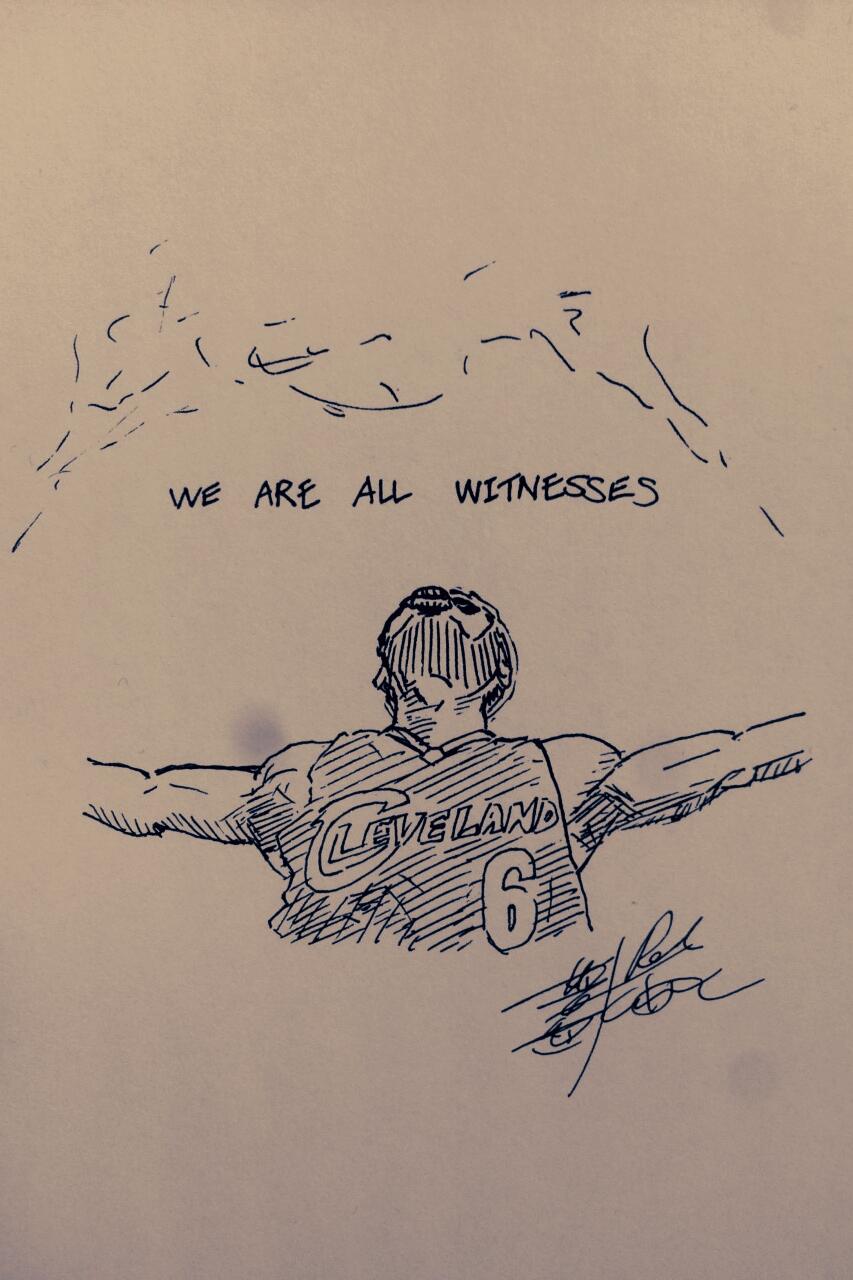 WE ARE ALL WITNESSES
CLEVELAND
6